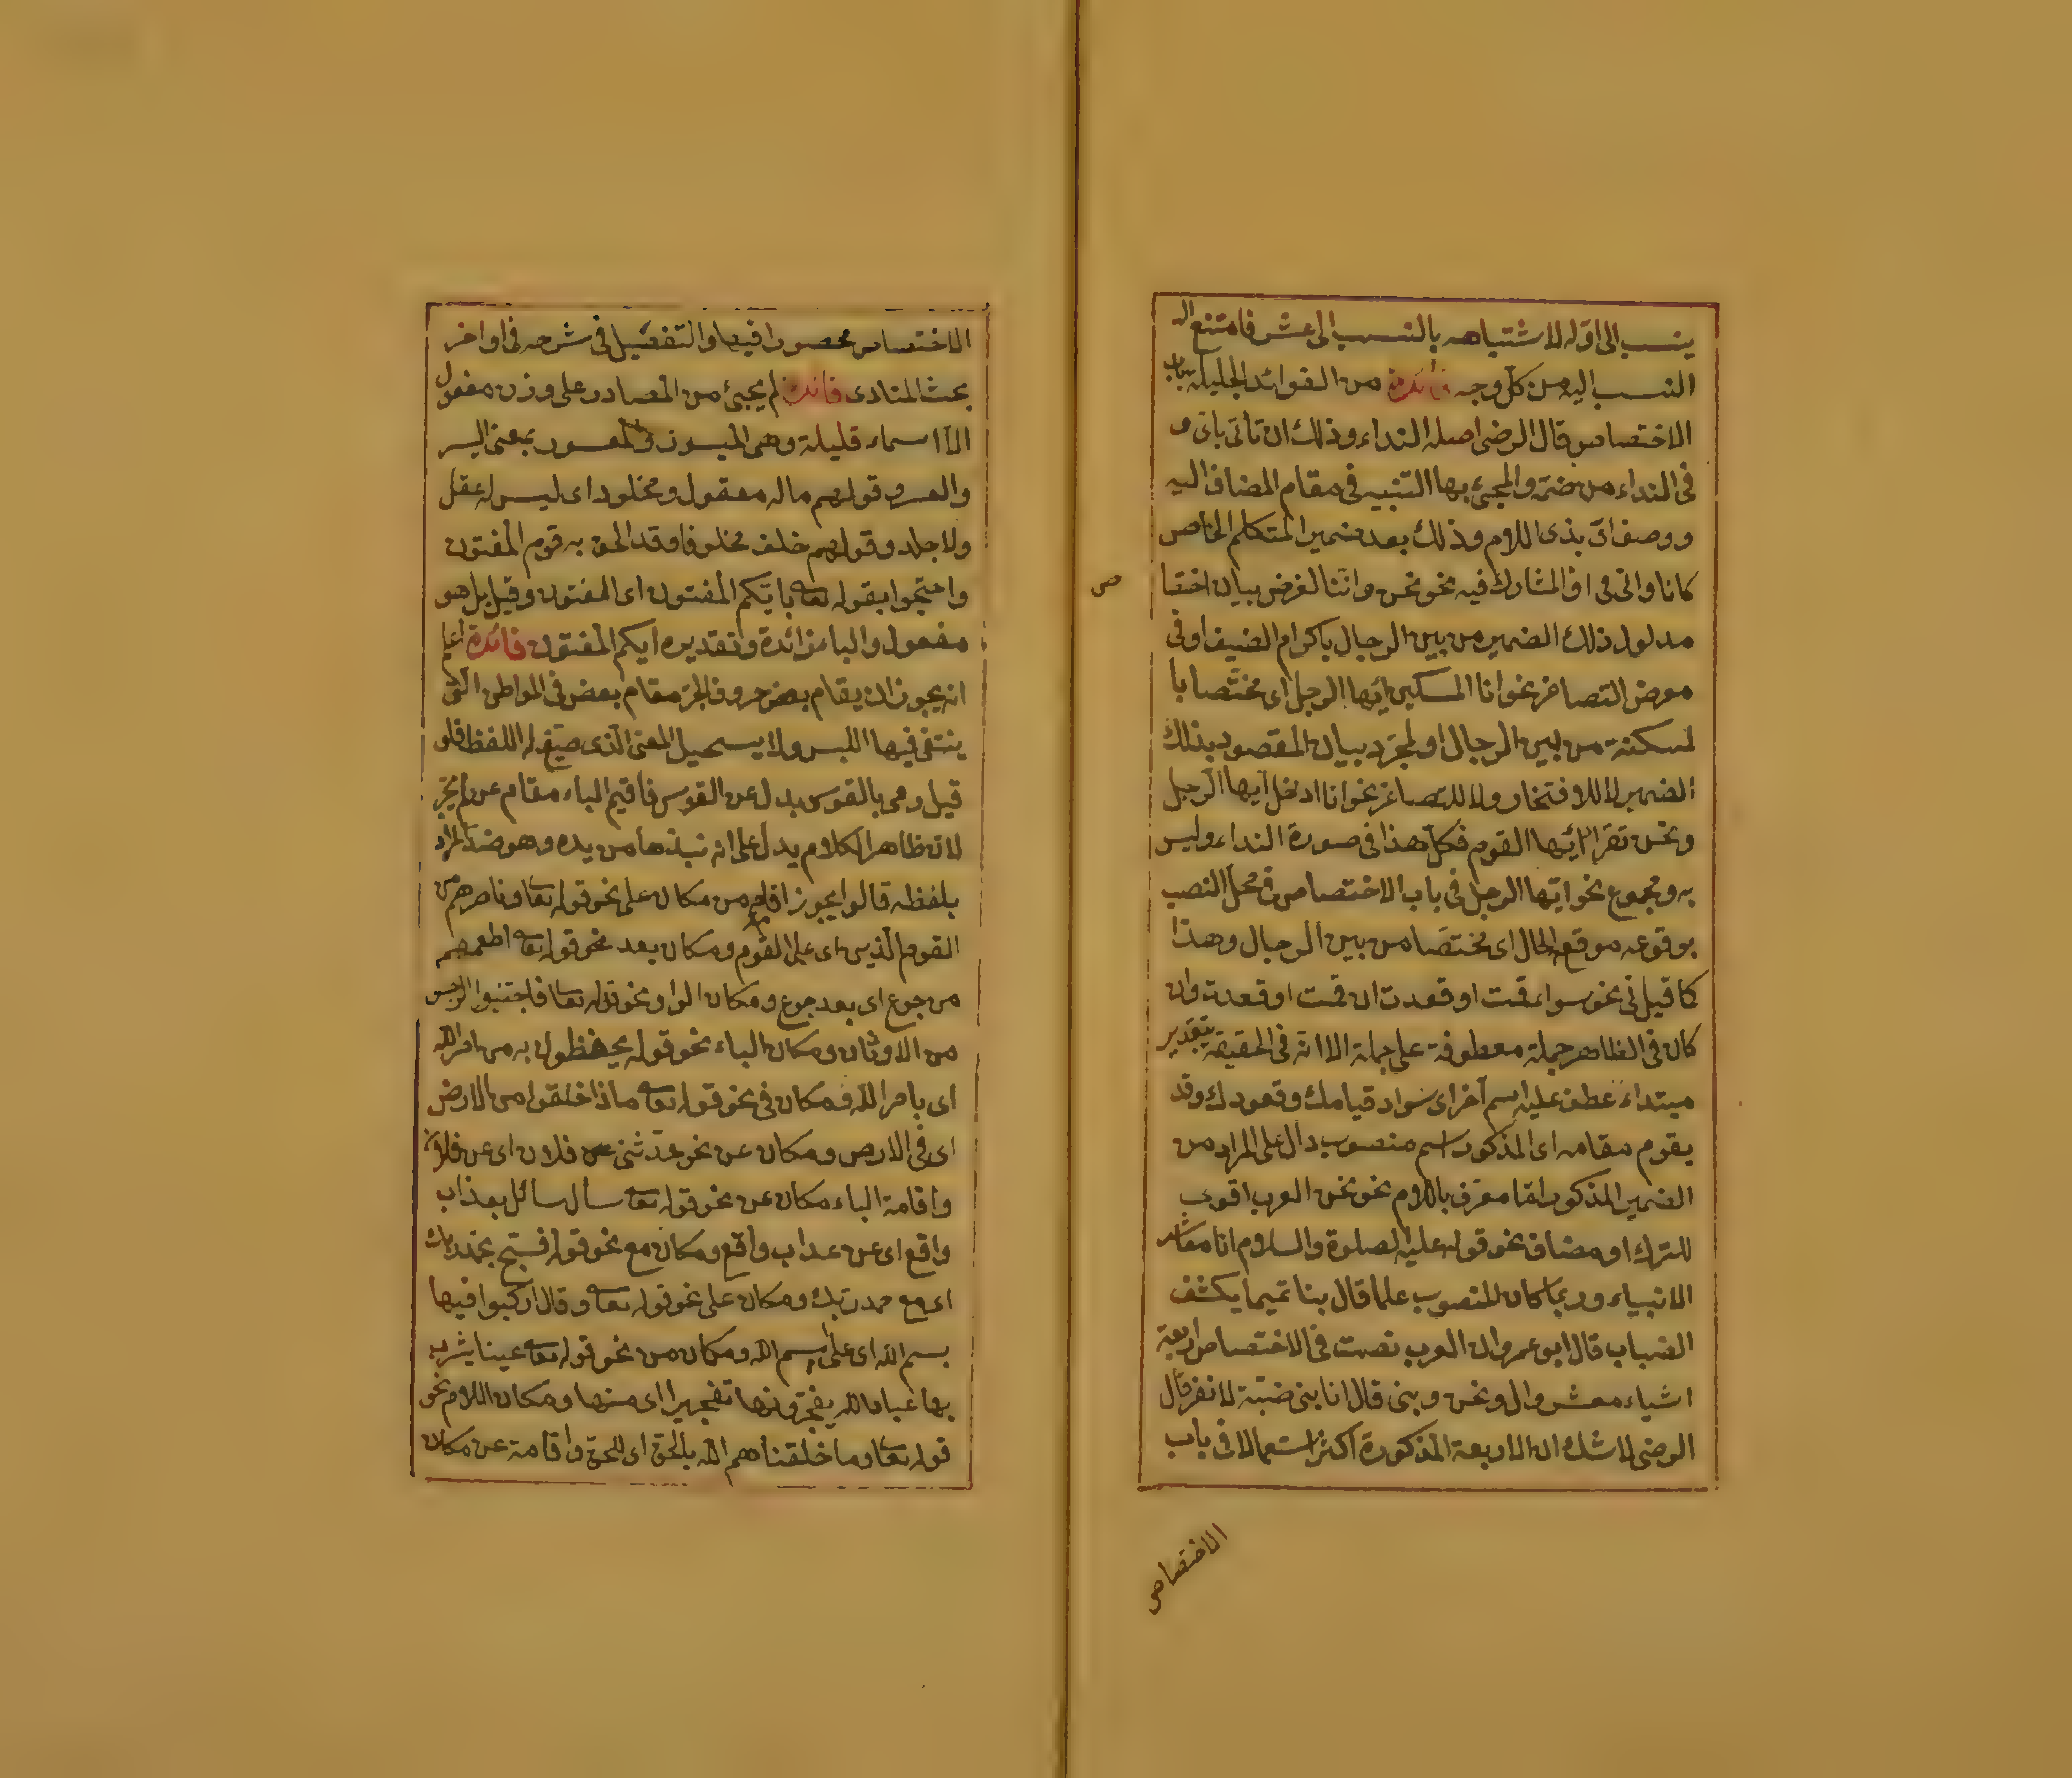 ينسب الى اوله لاشتباهه بالنسب الى عشر فامتنع
النسب اليه من كل وجه فائدة من الفوائد الجليلة بباب
الاختصاص قال الرضى اصله النداء وذلك ان تأتى باى
فى النداء من ضمة والمجئ بها التنبيه فى مقام المضاف اليه
ووصف اى بذى اللام وذلك بعد ضمير المتكلم الخاص
كانا وانى او المشارك فيه نحو نحن واننا لغرض بيان اختصا
ص
مدلول ذلك الضمير من بين الرجال باكرام الضيف او فى
معرض التصاغر نحو انا المسكين ايها الرجل اى مختصا با
لمسكنة من بين الرجال او لمجرد بيان المقصود بذلك
الضمير لا للافتخار ولا للتصاغر نحو انا ادخل ايها الرجل
ونحن نقرا ايها القوم فكل هذا فى صورة النداء وليس
به ومجموع نحو ايها الرجل فى باب الاختصاص فى محل النصب
بوقوعه موقع الحال اى مختصا من بين الرجال وهذا
كما قيل فى نحو سواء قمت او قعدت ان قمت او قعدت وان
كان فى الظاهر جملة معطوفة على جملة الا انه فى الحقيقة بتقدير
مبتداء عطف عليه اسم آخر اى سواء قيامك وقعودك وقد
يقوم مقامه اى المذكور اسم منصوب دال على المراد من
الضمير المذكور اما معرف باللام نحو نحن العرب اقوى
للترك او مضاف نحو قوله عليه الصلوة والسلام انا معاشر
الانبياء وربما كان المنصوب علما قال بنا تميما يكشف
الضباب قال ابو عمرو ان العرب نصبت فى الاختصاص اربعة
اشياء معشر وال ونحن وبنى قال انا بنى ضبة لا نفر قال
الرضى لا شك ان الاربعة المذكورة اكثر استعمالا فى باب
الاختصاص
الاختصاص محصورا فيها والتفصيل فى شرحه فى اواخر
بحث المنادى فائدة لم يجئ من المصادر على وزن مفعول
الا اسماء قليلة وهى الميسور والمعسور بمعنى اليسر
والعسر وقولهم ماله معقول ومجلود اى ليس له عقل
ولا جلد وقولهم خلف مخلوفا وقد الحق به قوم المفتون
واحتجوا بقوله تعا بايكم المفتون اى المفتون وقيل بل هو
مفعول والباء زائدة وتقديره ايكم المفتون فائدة اعلم
انه يجوز ان يقام بعض حروف الجر مقام بعض فى المواطن التى
ينتفى فيها اللبس ولا يستحيل المعنى الذى صيغ له اللفظ فلو
قيل رمى بالقوس بدل عن القوس فاقيم الباء مقام عن لم يجز
لان ظاهر الكلام يدل على انه نبذها من يده وهو ضد المراد
بلفظه قالوا يجوز اقامة من مكان على نحو قوله تعا ونصرهم من
القوم الذين اى على القوم ومكان بعد نحو قوله تعا اطعمهم
من جوع اى بعد جوع ومكان الواو نحو قوله تعا فاجتنبوا الرجس
من الاوثان ومكان الباء نحو قوله يحفظونه من امر الله
اى بامر الله ومكان فى نحو قوله تعا ماذا خلقوا من الارض
اى فى الارض ومكان عن نحو حدثنى من فلان اى عن فلان
واقامة الباء مكان عن نحو قوله تعا سأل سائل بعذاب
واقع اى عن عذاب واقع ومكان مع نحو قوله فسبح بحمد ربك
اى مع حمد ربك ومكان على نحو قوله تعا وقال اركبوا فيها
بسم الله اى على اسم الله ومكان من نحو قوله تعا عينا يشرب
بها عباد الله يفجرونها تفجيرا اى منها ومكان اللام نحو
قوله تعا وما خلقناهم الله بالحق اى للحق واقامة عن مكان